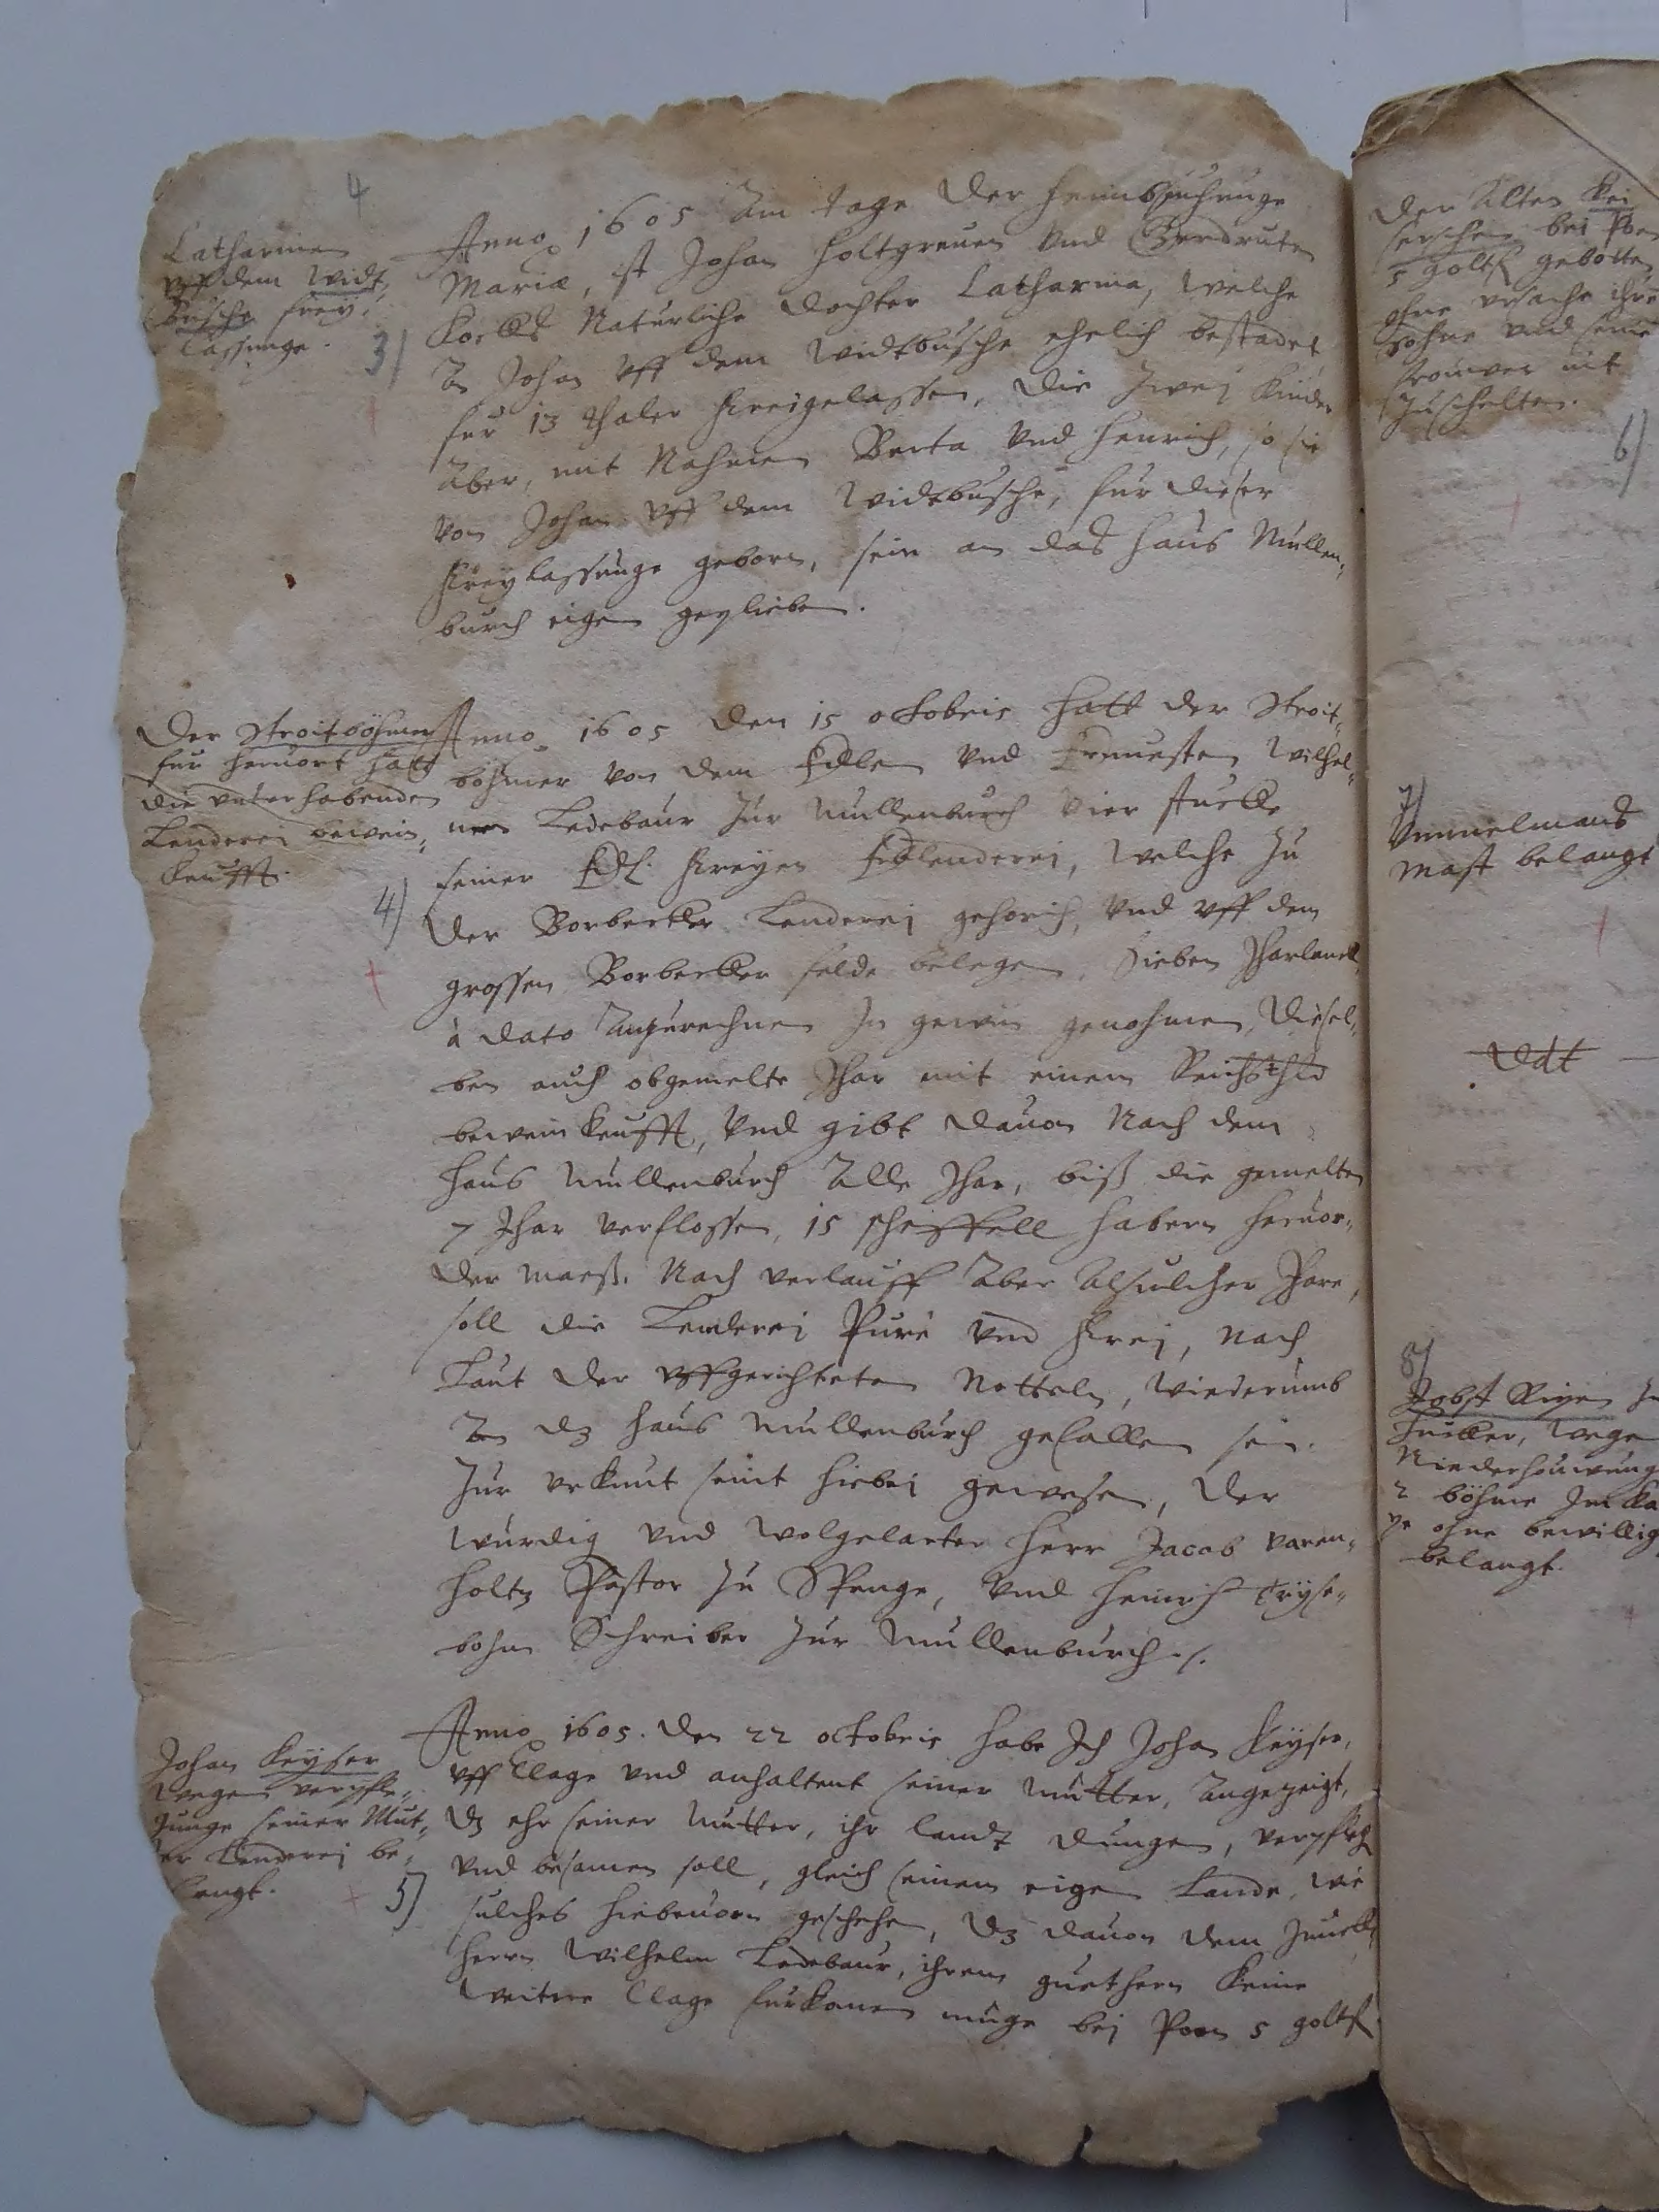 4
Catharinen
vff dem Widt„
Büsche frey„
lassunge.
3)
Anno 1605 Am tage der heimbsuchunge
Mariæ, ist Johan Holtgreuen vnd Gerdruten
Kocks Natürliche dochter Catharina, welche
An Johan vff dem Widtbüsche ehelich bestadet
für 13 thaler freigelassen, die zwei Kinder
Aber, mit Nahmen Berta vnd Henrich, so sie
von Johan vff dem Widtbusche, für dieser
freylassunge geborn, sein an das haus Mullen„
burch eigen geplieben.
Der Stroitböhmer
für heruort hatt
die vnterhabende
Lenderei bewein„
keufft.
4)
Anno 1605 den 15 octobris hatt der Stroit„
böhmer von dem Edlen vnd Ernuesten Wilhel„
men Ledebaur zur Mullenburch vier stucke
seiner Edl. freyen Erblenderei, welche zu
der Borbecker Lenderei gehorich, vnd vff dem
grossen Borbecker felde belegen, Sieben Jharlanck
à dato Anzurechnen In gewin genohmen, Diesel„
ben auch obgemelte Jhar mit einem Reichsthlr
beweinkeufft, vnd gibt dauon Nach dem
haus Mullenburch Alle Jhar, biß die gemelten
7 Jhar verflossen, 15 scheffell habern heruor„
der maeß. Nach verlauff Aber Alsulcher Jhare,
soll die Lenderei Pure vnd frei, nach
Laut der vffgerichteten Notteln, wiederumb
An dz haus Mullenburch gefallen sein.
Zur vrkunt seint hiebei gewesen, der
würdig vnd wolgelarter Herr Jacob varen„
holtz Pastor zu Spenge, vnd Henrich Cryse„
bohm Schreiber zur Mullenburch ./.
Johan Keyser
wegen verpfle„
gunge seiner Mut„
ter Lenderei be„
langt.
5)
Anno 1605. den 22 octobris habe Ich Johan Keyser,
vff Clage vnd anhaltent seiner Mutter, Angezeigt,
dz ehr seiner Mutter, ihr landt dungen,
vnd besamen soll, gleich seinem eigen Lande, wie
sulches hiebeuorn geschehen, dz dauon dem Junck„
hern Wilhelm Ledebaur, ihrem guethern keine
weitere Clage fürkomen müge bei Poen 5 goltfl
Der Alten Kei
serschen bei Poen
5 goltfl gebotten
ohne vrsache ihre
Sohne vnd seine
frouwen nit
zuschelten.
6)
7)
Vmmelmans
Mast belangt
Ddt
8)
Jobst
Juncker, wegen
Niederhouwung
2 böhme Im
ohne bewillig
belangt.